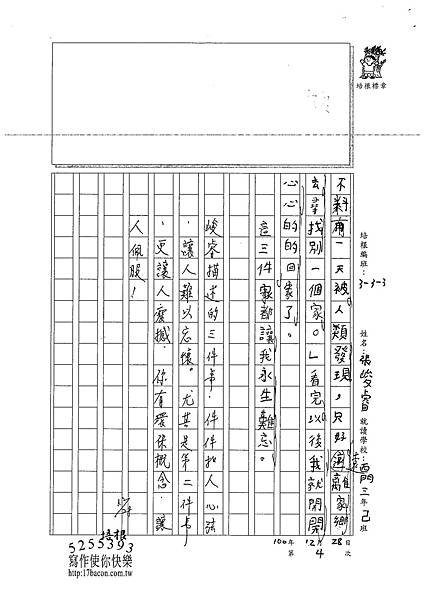 培根標章
培根編班：3-3-3
姓名：張峻睿
就讀學校：西門三年己班
100年12月28日
第4次
不料有一天被人類發現，只好遠離家鄉
去尋找別一個家。」看完以後我就開開
心心的的回家了。
這三件事都讓我永生難忘。
峻睿描述的三件事，件件扣人心弦
，讓人難以忘懷。尤其是第二件事
，更讓人震撼，你有環保概念，讓
人佩服！
培根
5255393
寫作使你快樂
http://17bacon.com.tw